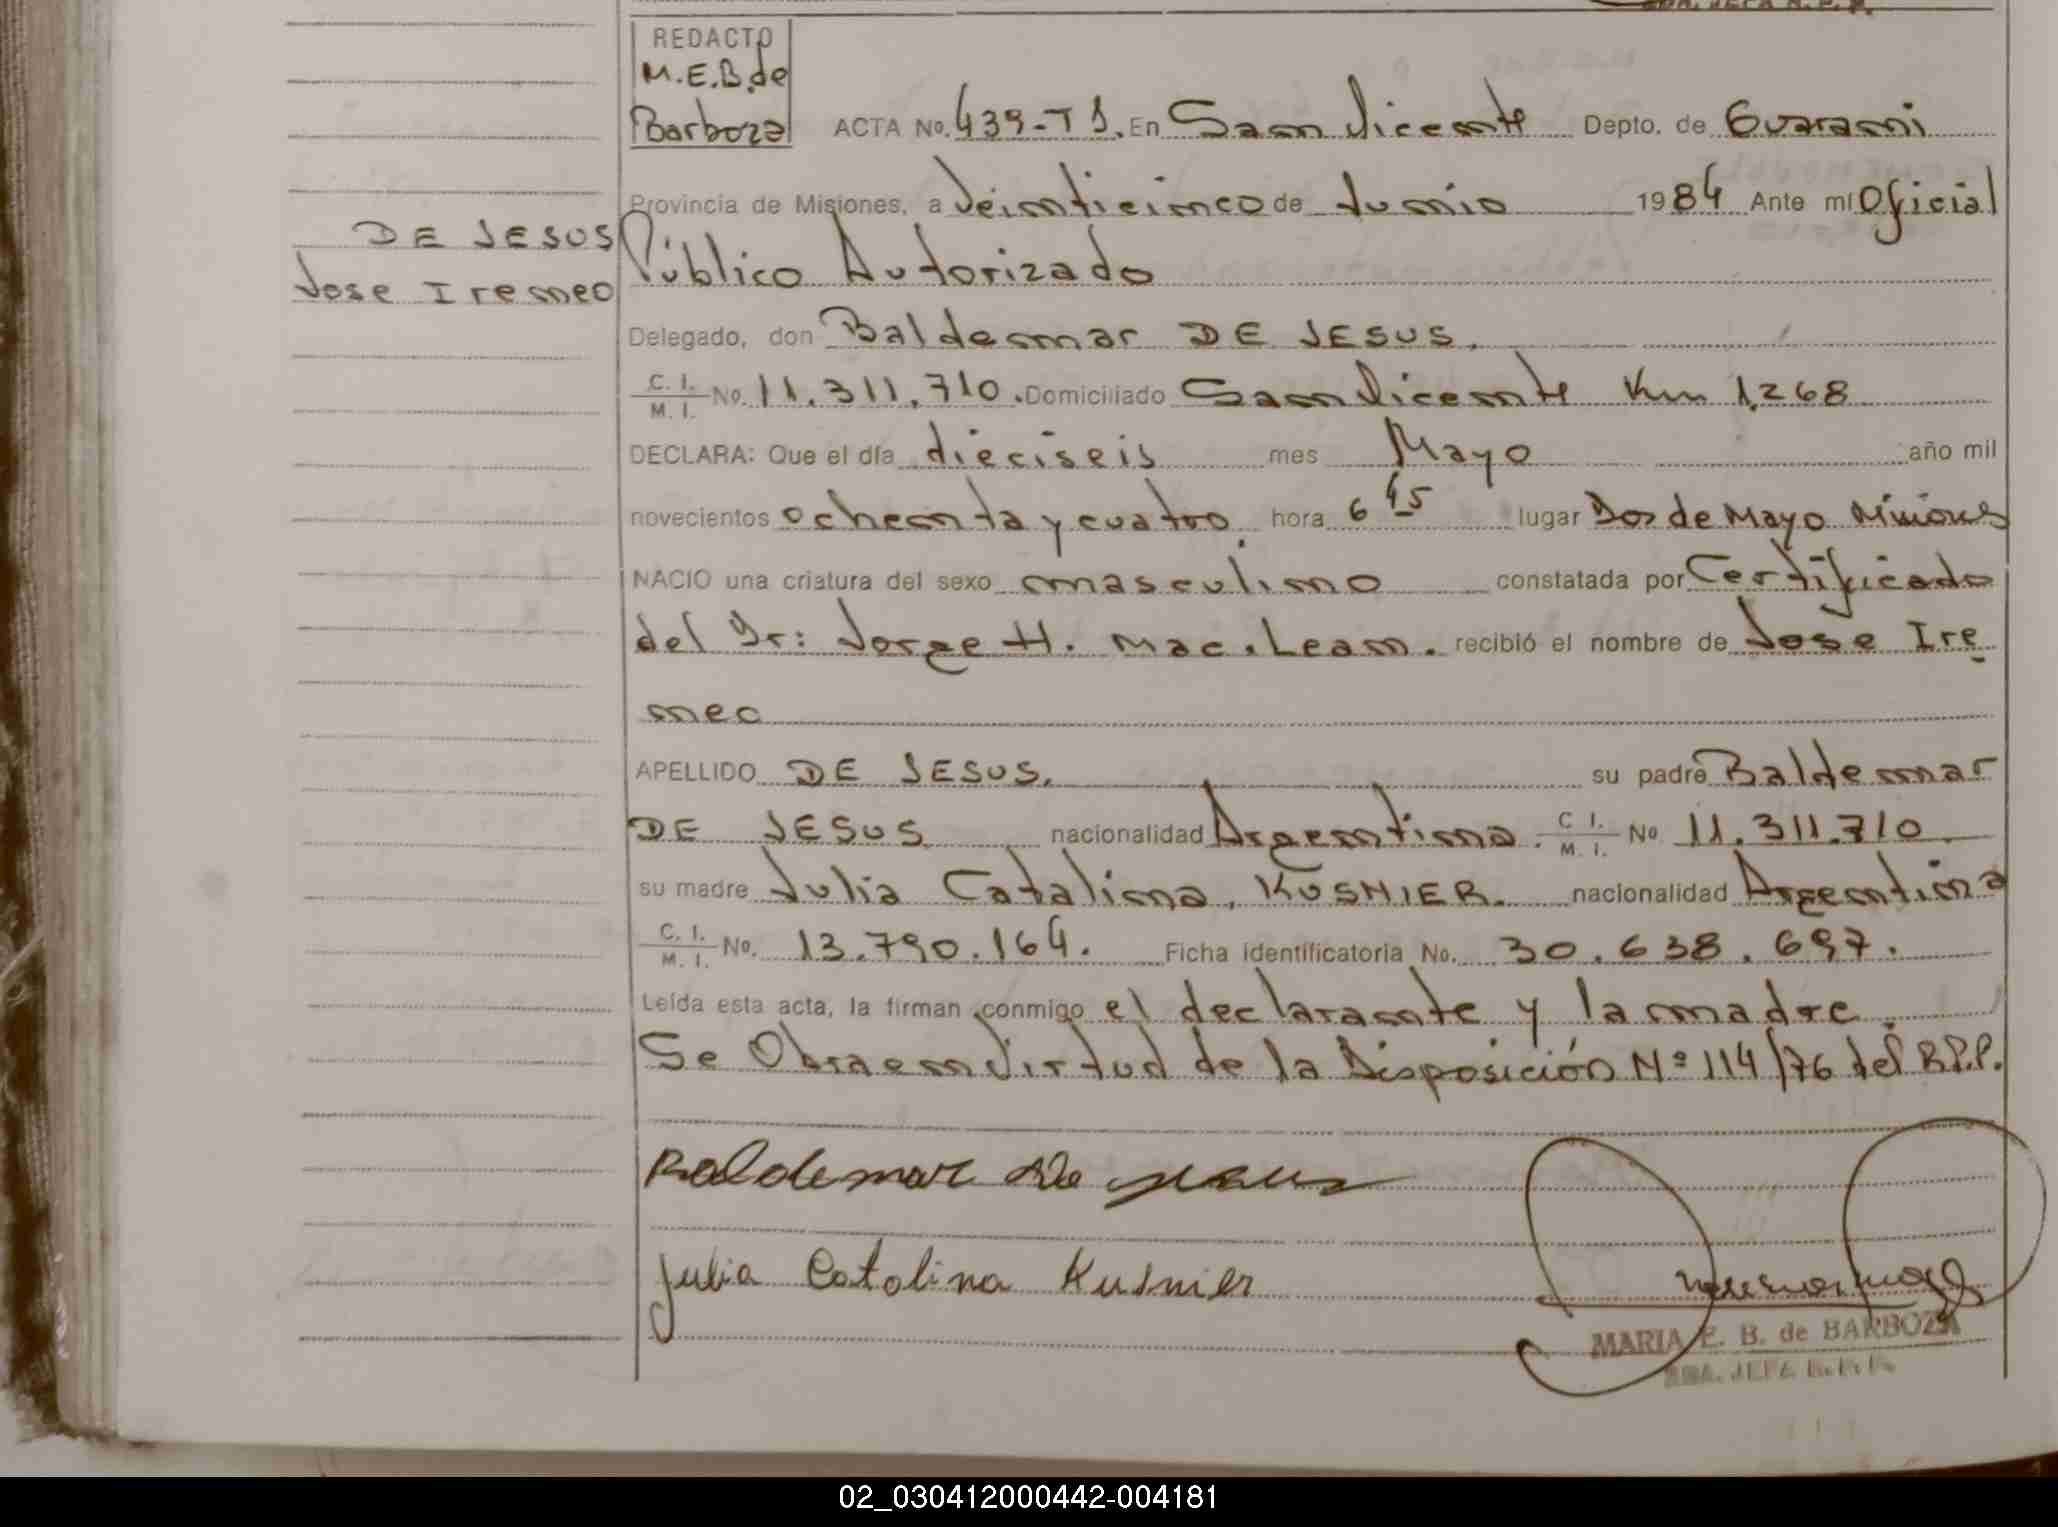 REDACTO
M.E.B. de
Barboza
ACTA No. 439-T3. En San Vicente Depto. de Guarani
Provincia de Misiones, a Veinticinco de Junio 1984 Ante mi Oficial
DE JESUS
Jose Ireneo
Público Autorizado
Delegado, don Baldemar DE JESUS.
C. I. / M. I. No. 11.311.710. Domiciliado San Vicente Km 1.268
DECLARA: Que el día dieciseis mes Mayo año mil
novecientos ochenta y cuatro. hora 6 45 lugar Dos de Mayo Misiones
NACIO una criatura del sexo masculino constatada por Certificado
del Dr: Jorge H. Mac.Lean. recibió el nombre de Jose Ire
neo
APELLIDO DE JESUS. su padre Baldemar
DE JESUS nacionalidad Argentina. C I. / M. I. No 11.311.710.
su madre Julia Catalina, KUSNIER. nacionalidad Argentina
C. I. / M. I. No. 13.790.164. Ficha identificatoria No. 30.638.697.
Leída esta acta, la firman conmigo el declarante y la madre.
Se Obra en Virtud de la Disposición Nº 114/76 del R.P.P.
Baldemar de Jesus
Julia Catalina Kusnier
MARIA E. B. de BARBOZA
JEFA R.P.P.
02_030412000442-004181